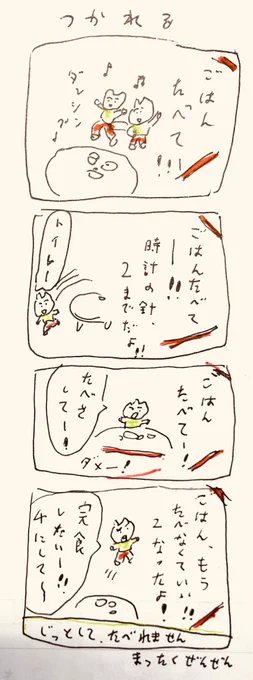 つかれる
ごはん
たべて
!!!
ダンシン
グ♪
ごはんたべて
ー!!
時計の針
2までだよ!!
トイレー!
ごはん
たべてー!!
たべさ
してー!
ダメー!
ごはん、もう
たべなくていい!!
2なったよ!
完食
したいー!!
チにしてー
じっとして、たべれません
まったくぜんぜん